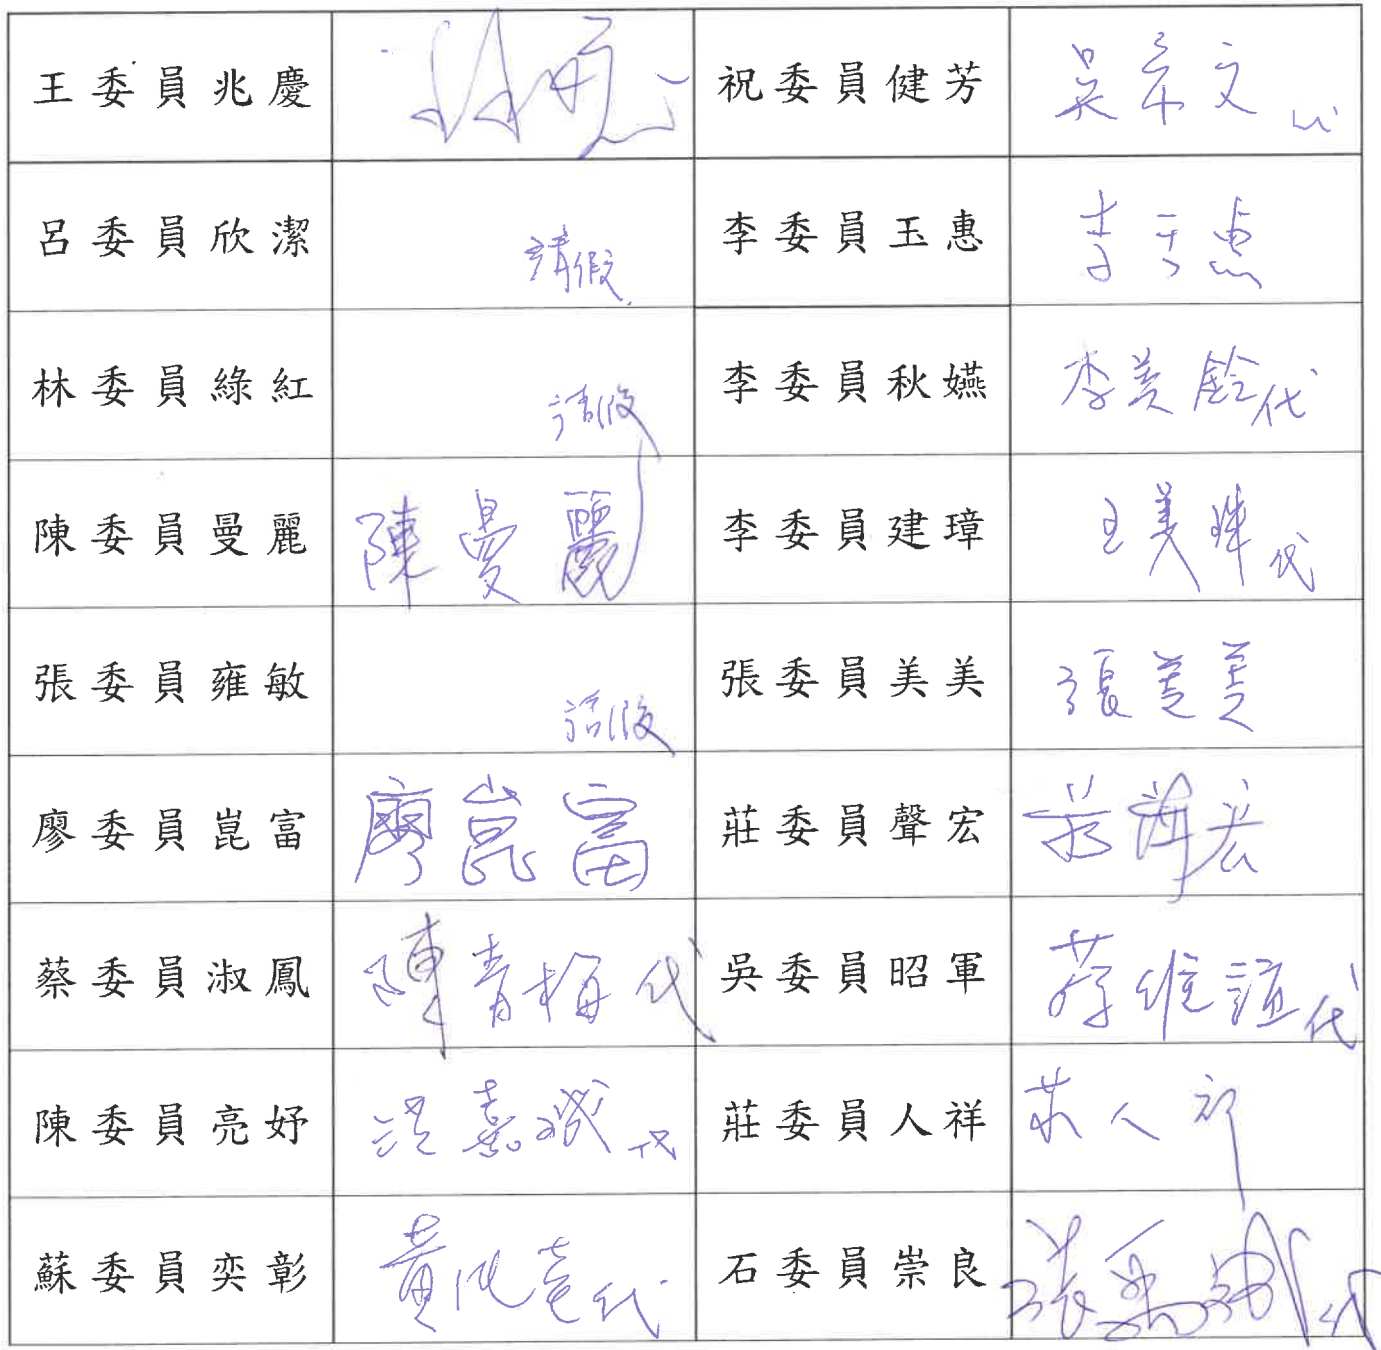 王委員兆慶 祝委員健芳 吳希文
呂委員欣潔 請假 李委員玉惠 李玉惠
林委員綠紅 請假 李委員秋嬿 李美鈴代
陳委員曼麗 陳曼麗 李委員建璋 王美珠代
張委員雍敏 請假 張委員美美 張美美
廖委員崑富 廖崑富 莊委員聲宏 莊聲宏
蔡委員淑鳳 陳青梅代 吳委員昭軍 蔡維誼代
陳委員亮妤 洪嘉璣代 莊委員人祥 莊人祥
蘇委員奕彰 黃代 石委員崇良 張代